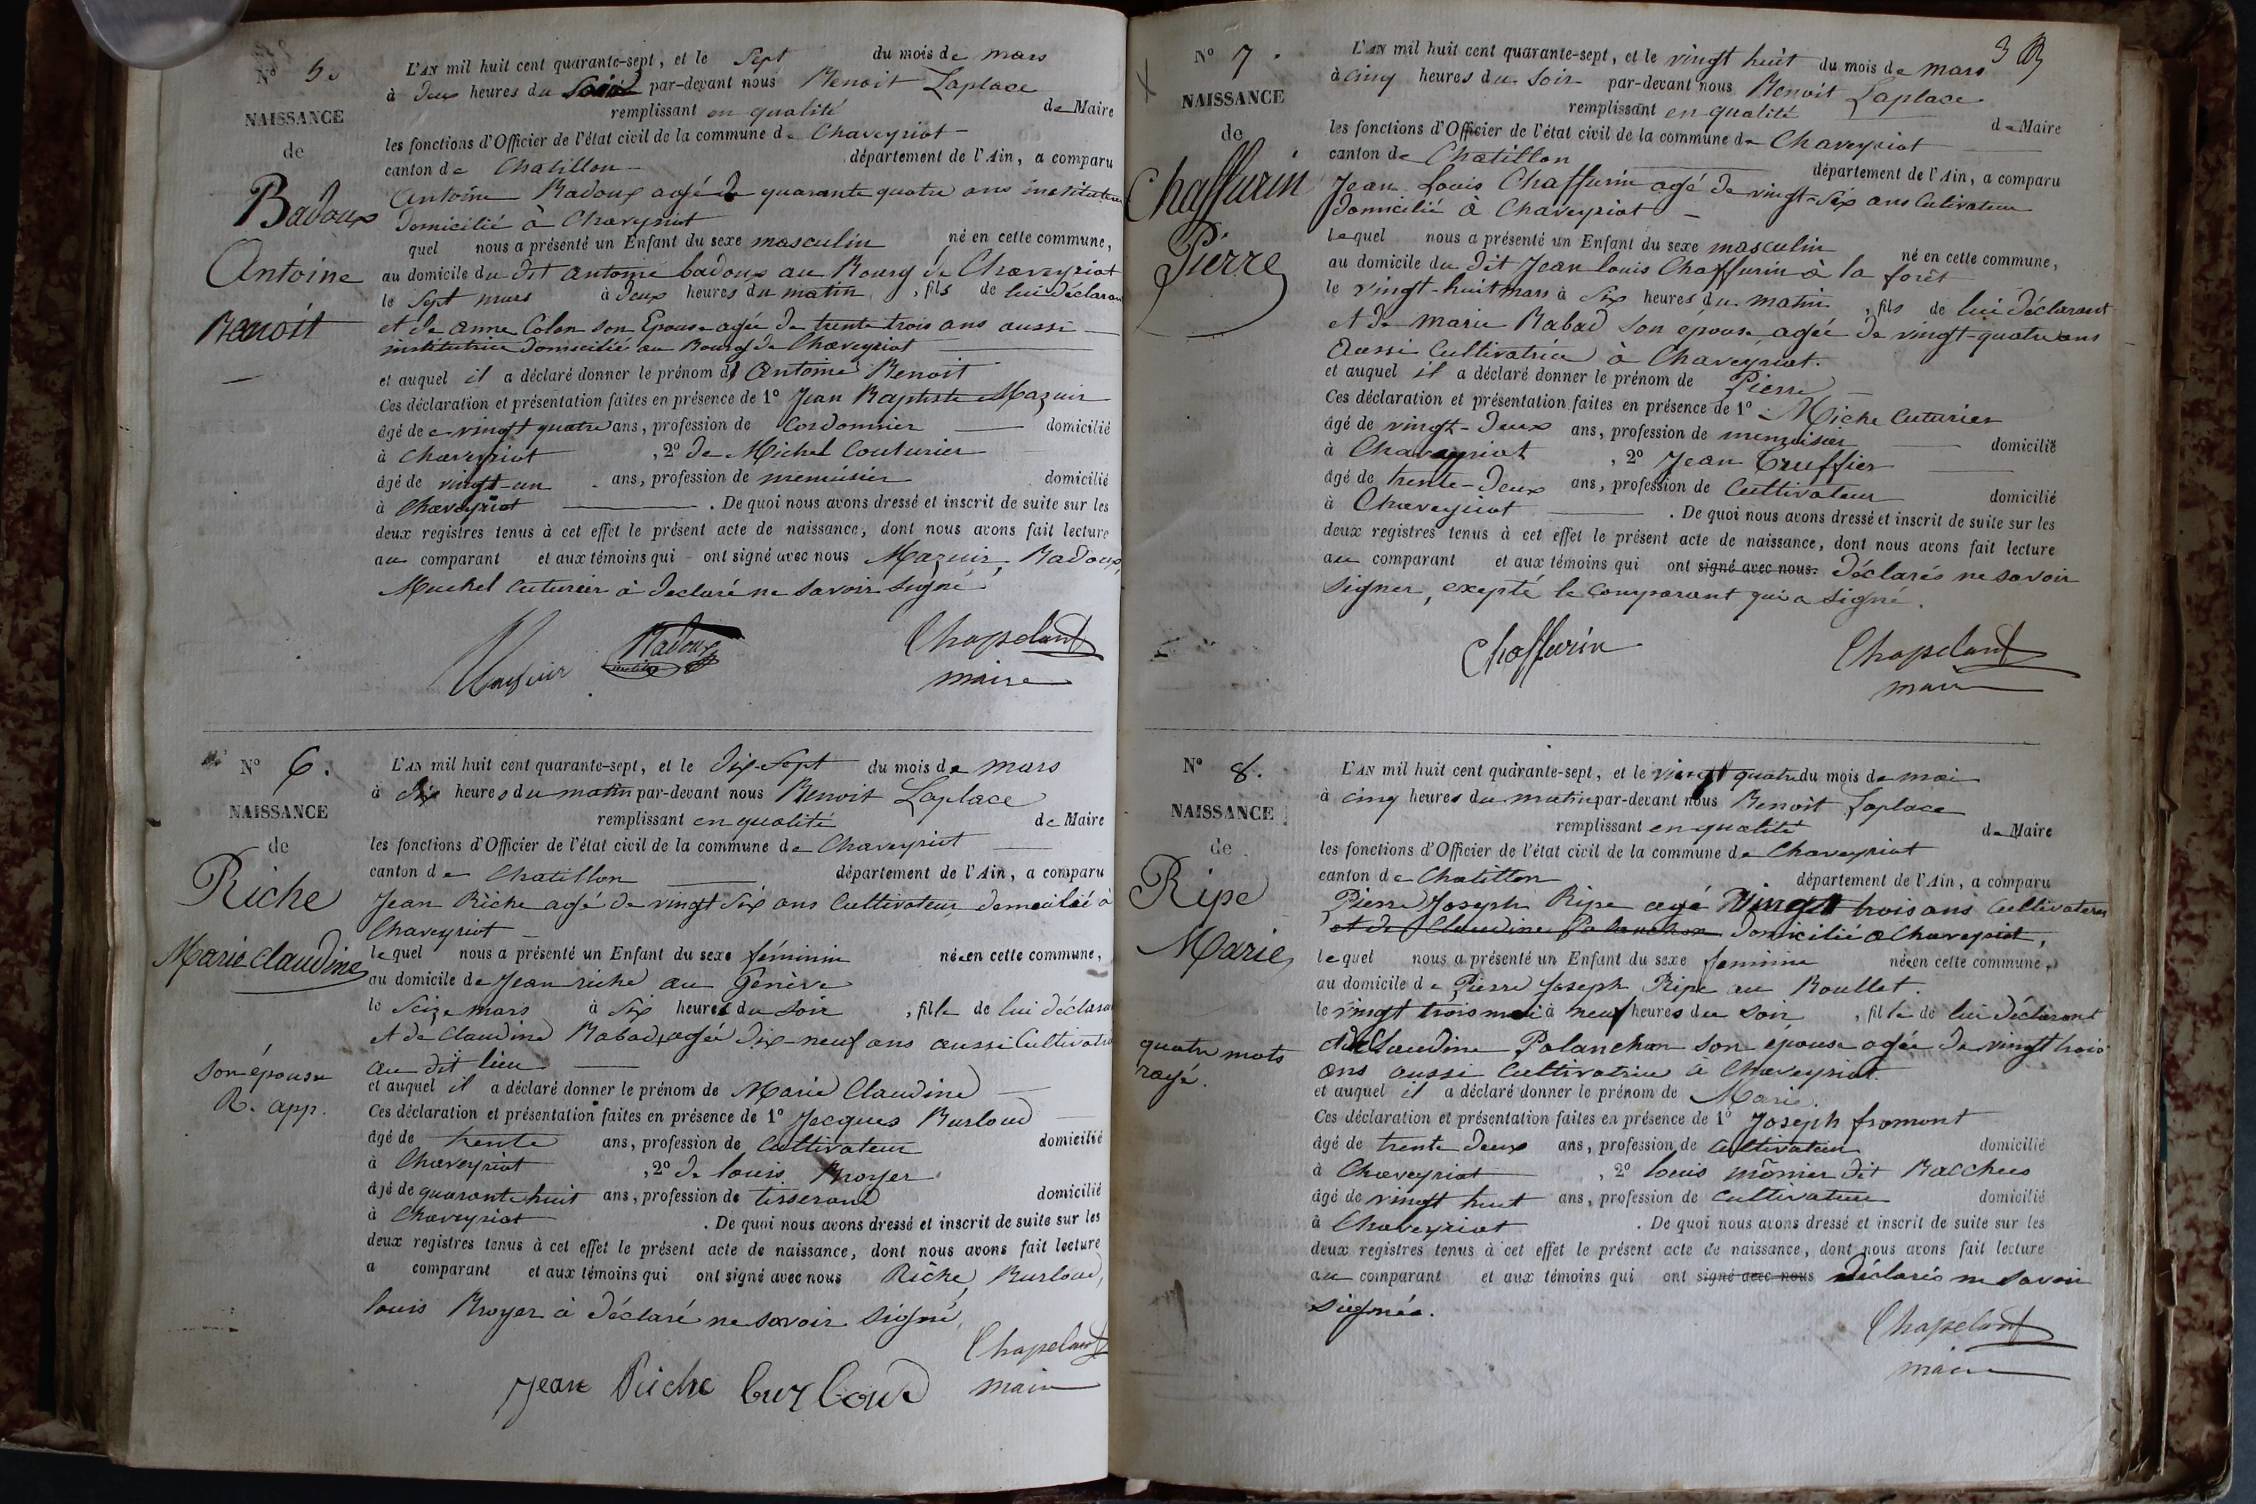 N° 5.
NAISSANCE
de
Badoux
Antoine
Benoit
L'AN mil huit cent quarante-sept, et le sept du mois de mars
à deux heures du soir par-devant nous Benoit Laplace
remplissant en qualité de Maire
les fonctions d'Officier de l'état civil de la commune de Chaveyriat
canton de Chatillon département de l'Ain, a comparu
Antoine Badoux agé de quarante quatre ans instituteur
domicilié à Chaveyriat
quel nous a présenté un Enfant du sexe masculin né en cette commune,
au domicile du dit antoine badoux au Bourg de Chaveyriat
le sept mars à deux heures du matin, fils de lui déclarant
et de anne Colon son Epouse agée de trente trois ans aussi
institutrice domicilié au Bourg de Chaveyriat
et auquel il a déclaré donner le prénom de Antoine Benoit
Ces déclaration et présentation faites en présence de 1° Jean Baptiste Mazuir
âgé de vingt quatre ans, profession de Cordonnier domicilié
à Chaveyriat, 2° de Michel Couturier
âgé de vingt-un ans, profession de menuisier domicilié
à Chaveyriat. De quoi nous avons dressé et inscrit de suite sur les
deux registres tenus à cet effet le présent acte de naissance, dont nous avons fait lecture
au comparant et aux témoins qui ont signé avec nous Mazuir, Badoux,
Muchel cuturier à declaré ne savoir signé
Mazuir Badoux Chapelant
maire
N° 6.
NAISSANCE
de
Riche
Marie Claudine
son épouse
R. app.
L'AN mil huit cent quarante-sept, et le dix-sept du mois de mars
à dix heures du matin par-devant nous Benoit Laplace
remplissant en qualité de Maire
les fonctions d'Officier de l'état civil de la commune de Chaveyriat
canton de Chatillon département de l'Ain, a comparu
Jean Riche agé de vingt six ans Cultivateur domicilié à
Chaveyriat
lequel nous a présenté un Enfant du sexe féminin née en cette commune,
au domicile de Jean riche au Genève
le seize mars à six heures du soir, fille de lui déclarant
et de Claudine Rabad, agée dix-neuf ans aussi Cultivatrice
au dit lieu
et auquel il a déclaré donner le prénom de Marie Claudine
Ces déclaration et présentation faites en présence de 1° Jacques Burloud
âgé de trente ans, profession de Cultivateur domicilié
à Chaveyriat, 2° de louis Broyer
âgé de quarante huit ans, profession de tisserand domicilié
à Chaveyriat. De quoi nous avons dressé et inscrit de suite sur les
deux registres tenus à cet effet le présent acte de naissance, dont nous avons fait lecture
a comparant et aux témoins qui ont signé avec nous Riche, Burloud,
louis Broyer à déclaré ne savoir signé,
Chapelant
Jean Riche burloud maire
3
N° 7.
NAISSANCE
de
Chaffurin
Pierre
L'AN mil huit cent quarante-sept, et le vingt huit du mois de mars
à cinq heures du soir par-devant nous Benoit Laplace
remplissant en qualité de Maire
les fonctions d'Officier de l'état civil de la commune de Chaveyriat
canton de Chatillon département de l'Ain, a comparu
Jean Louis Chaffurin agé de vingt-six ans Cultivateur
domicilié à Chaveyriat
lequel nous a présenté un Enfant du sexe masculin né en cette commune,
au domicile du dit Jean louis Chaffurin à la forêt
le vingt-huit mars à six heures du matin, fils de lui déclarant
et de marie Rabad son épouse agée de vingt-quatre ans
aussi Cultivatrice à Chaveyriat.
et auquel il a déclaré donner le prénom de Pierre
Ces déclaration et présentation faites en présence de 1° Miche Cuturier
âgé de vingt-deux ans, profession de menuisier domicilié
à Chaveyriat, 2° Jean Truffier
âgé de trente-deux ans, profession de Cultivateur domicilié
à Chaveyriat. De quoi nous avons dressé et inscrit de suite sur les
deux registres tenus à cet effet le présent acte de naissance, dont nous avons fait lecture
au comparant et aux témoins qui ont signé avec nous. déclarés ne savoir
signer, exepté le comparant qui a signé.
Chaffurin Chapelant
maire
N° 8.
NAISSANCE
de
Ripe
Marie
quatre mots
rayé.
L'AN mil huit cent quarante-sept, et le vingt quatre du mois de mai
à cinq heures du matin par-devant nous Benoit Laplace
remplissant en qualité de Maire
les fonctions d'Officier de l'état civil de la commune de Chaveyriat
canton de Chatillon département de l'Ain, a comparu
Pierre Joseph Ripe agé vingt trois ans Cultivateur
et de Claudine Palanchon domicilié à Chaveyriat,
lequel nous a présenté un Enfant du sexe feminin née en cette commune,
au domicile de Pierre Joseph Ripe au Roullet.
le vingt trois mai à neuf heures du soir, fille de lui déclarant
et de Claudine Palanchon son épouse agée de vingt trois
ans aussi Cultivatrice à Chaveyriat.
et auquel il a déclaré donner le prénom de Marie.
Ces déclaration et présentation faites en présence de 1° Joseph fromont
âgé de trente deux ans, profession de Cultivateur domicilié
à Chaveyriat, 2° louis mônier dit Bacchus
âgé de vingt huit ans, profession de Cultivateur domicilié
à Chaveyriat. De quoi nous avons dressé et inscrit de suite sur les
deux registres tenus à cet effet le présent acte de naissance, dont nous avons fait lecture
au comparant et aux témoins qui ont signé avec nous déclarés ne savoir
signée.
Chapelant
maire